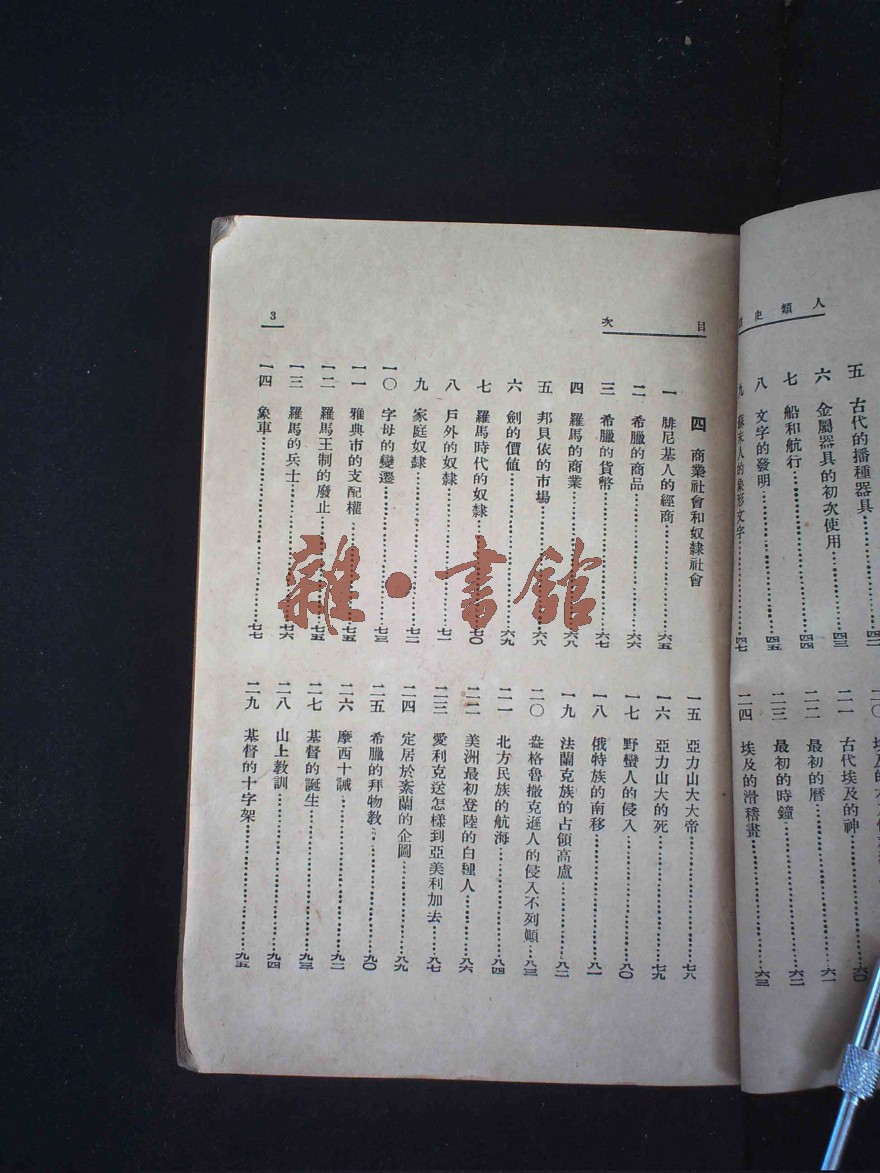 人類史
五 古代的播種器具
六 金屬器具的初次使用……四三
七 船和航行……四四
八 文字的發明……四五
九 人的象形文字……四七
二一 古代埃及的神……六〇
二二 最初的曆……六一
二三 最初的時鐘……六二
二四 埃及的滑稽畫……六三
目次
四 商業社會和奴隸社會
一 腓尼基人的經商……六五
二 希臘的商品……六六
三 希臘的貨幣……六七
四 羅馬的商業……六八
五 邦貝依的市場……六八
六 劍的價值……六九
七 羅馬時代的奴隸……七〇
八 戶外的奴隸……七一
九 家庭奴隸……七二
一〇 字母的變遷……七三
一一 雅典市的支配權……七五
一二 羅馬王制的廢止……七五
一三 羅馬的兵士……七六
一四 象車……七七
一五 亞力山大大帝……七八
一六 亞力山大的死……七九
一七 野蠻人的侵入……八〇
一八 俄特族的南移……八一
一九 法蘭克族的占領高盧……八二
二〇 盎格魯撒克遜人的侵入不列顛……八三
二一 北方民族的航海……八四
二二 美洲最初登陸的白種人……八六
二三 愛利克送怎樣到亞美利加去……八七
二四 定居於紊蘭的企圖……八九
二五 希臘的拜物教……九〇
二六 摩西十誡……九二
二七 基督的誕生……九三
二八 山上教訓……九四
二九 基督的十字架……九五
3
雜·書館